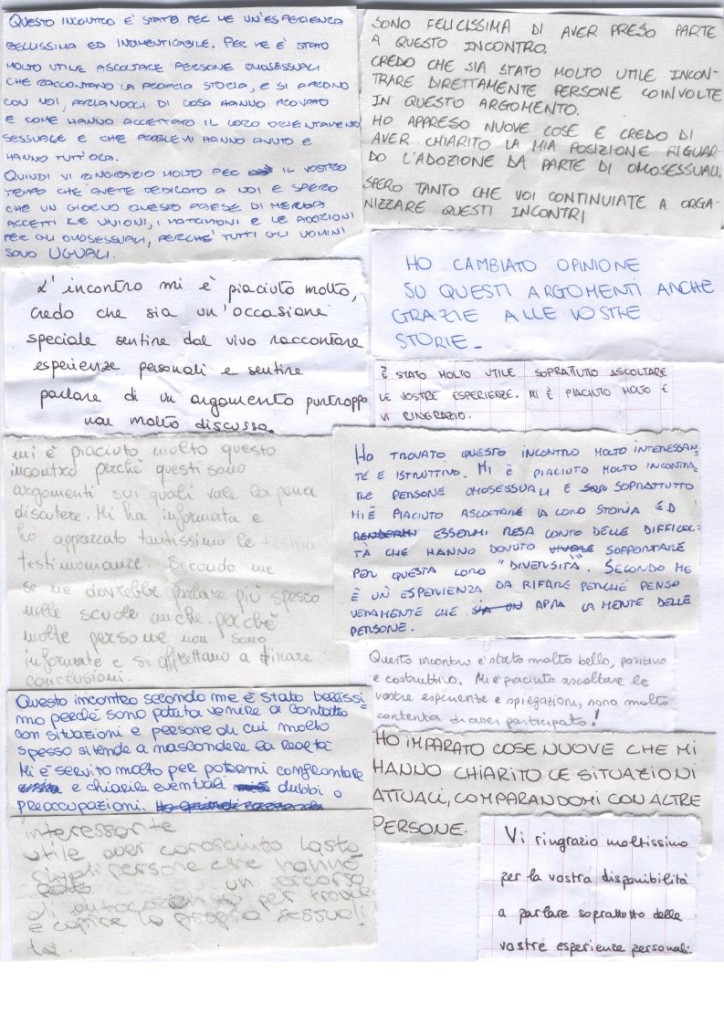 QUESTO INCONTRO È STATO PER ME UN'ESPERIENZA
BELLISSIMA ED INDIMENTICABILE. PER ME È STATO
MOLTO UTILE ASCOLTARE PERSONE OMOSESSUALI
CHE RACCONTANO LA PROPRIA STORIA, E SI APRONO
CON NOI, PARLANDOCI DI COSA HANNO PROVATO
E COME HANNO ACCETTATO IL LORO ORIENTAMENTO
SESSUALE E CHE PROBLEMI HANNO AVUTO E
HANNO TUTT'ORA.
QUINDI VI RINGRAZIO MOLTO PER IL VOSTRO
TEMPO CHE AVETE DEDICATO A NOI E SPERO
CHE UN GIORNO QUESTO PAESE DI MERDA
ACCETTI LE UNIONI, I MATRIMONI E LE ADOZIONI
PER GLI OMOSESSUALI, PERCHE' TUTTI GLI UOMINI
SONO UGUALI.
SONO FELICISSIMA DI AVER PRESO PARTE
A QUESTO INCONTRO.
CREDO CHE SIA STATO MOLTO UTILE INCON-
TRARE DIRETTAMENTE PERSONE COINVOLTE
IN QUESTO ARGOMENTO.
HO APPRESO NUOVE COSE E CREDO DI
AVER CHIARITO LA MIA POSIZIONE RIGUAR-
DO L'ADOZIONE DA PARTE DI OMOSESSUALI.
SPERO TANTO CHE VOI CONTINUIATE A ORGA-
NIZZARE QUESTI INCONTRI
HO CAMBIATO OPINIONE
SU QUESTI ARGOMENTI ANCHE
GRAZIE ALLE VOSTRE
STORIE.
L'incontro mi è piaciuto molto,
credo che sia un'occasione
speciale sentire dal vivo raccontare
esperienze personali e sentire
parlare di un argomento purtroppo
non molto discusso.
È STATO MOLTO UTILE SOPRATUTTO ASCOLTARE
LE VOSTRE ESPERIENZE. MI È PIACIUTO MOLTO E
VI RINGRAZIO.
mi è piaciuto molto questo
incontro perchè questi sono
argomenti sui quali vale la pena
discutere. Mi ha informata e
ho apprezzato tantissimo le
testimonianze. Secondo me
se ne dovrebbe parlare più spesso
nelle scuole anche perchè
molte persone non sono
informate e si affrettano a tirare
conclusioni.
HO TROVATO QUESTO INCONTRO MOLTO INTERESSAN-
TE E ISTRUTTIVO. MI È PIACIUTO MOLTO INCONTRA-
RE PERSONE OMOSESSUALI E SOPRATTUTTO
MI È PIACIUTO ASCOLTARE LA LORO STORIA ED
ESSERMI RESA CONTO DELLE DIFFICOL-
TÀ CHE HANNO DOVUTO SOPPORTARE
PER QUESTA LORO "DIVERSITÀ". SECONDO ME
È UN'ESPERIENZA DA RIFARE PERCHÈ PENSO
VERAMENTE CHE APRA LA MENTE DELLE
PERSONE.
Questo incontro è stato molto bello, positivo
e costruttivo. Mi è piaciuto ascoltare le
vostre esperienze e spiegazioni, sono molto
contenta di aver partecipato!
Questo incontro secondo me è stato bellissi
mo perchè sono potuta venire a contatto
con situazioni e persone di cui molto
spesso si tende a nascondere la realtà
Mi è servito molto per potermi confrontare
e chiarire eventuali dubbi o
preoccupazioni.
HO IMPARATO COSE NUOVE CHE MI
HANNO CHIARITO LE SITUAZIONI
ATTUALI, COMPARANDOMI CON ALTRE
PERSONE.
interessante
utile aver conosciuto
persone che hanno
un percorso
di per trovare
e capire la propria sessuali
tà.
Vi ringrazio moltissimo
per la vostra disponibilità
a parlare soprattutto delle
vostre esperienze personali.